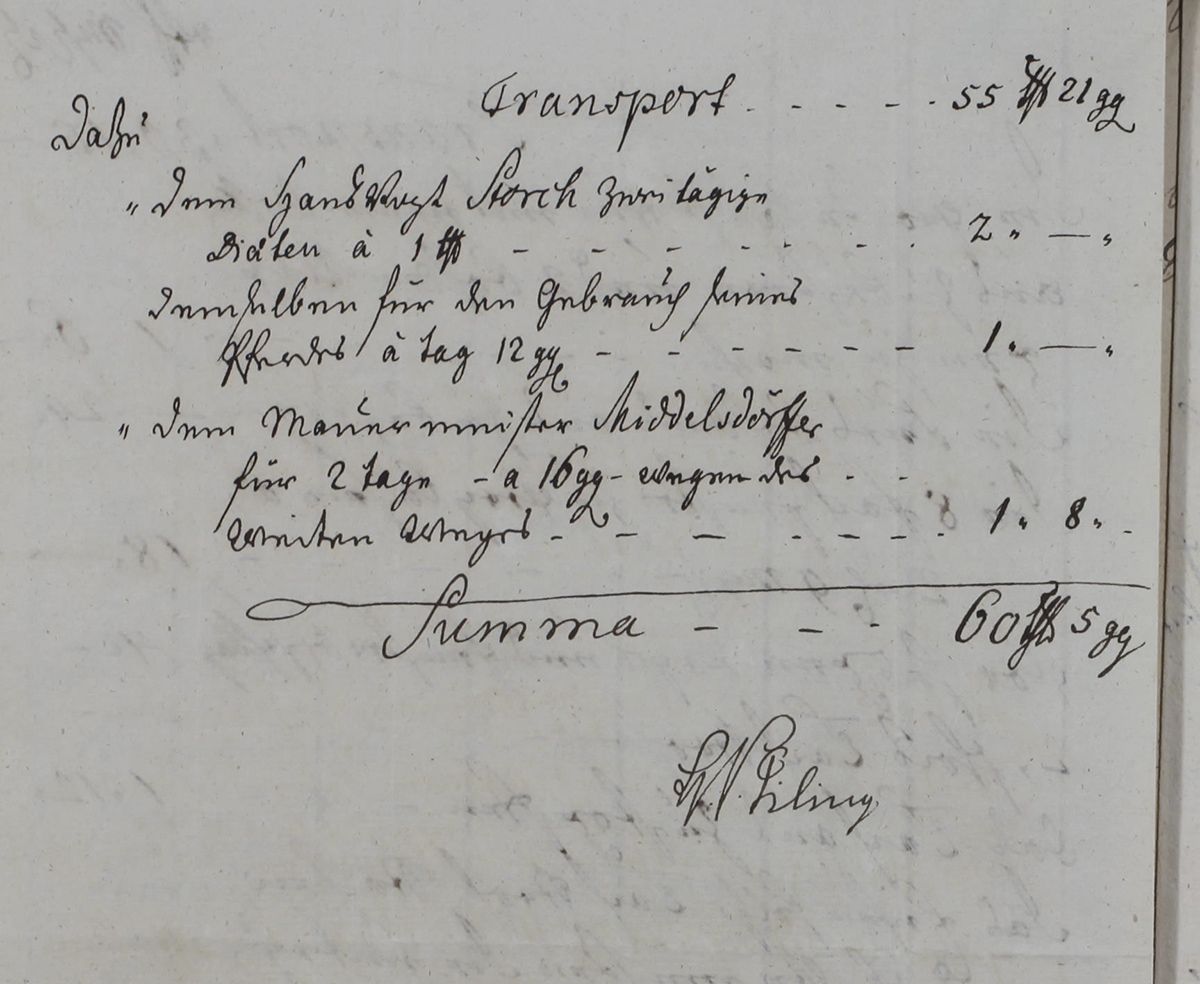 Transport - - - - - 55 rthl 21 gg
Dazu
" dem HausVogt Storch zweitägige
Diäten à 1 rthl - - - - - - - 2 " — "
demselben für den Gebrauch seines
Pferdes à tag 12 gg - - - - - - 1 " — "
" dem Mauermeister Middelsdörffer
für 2 tage - a 16 gg - wegen des - -
Weiten Weges - - - - - - - - 1 " 8 " -
Summa - - - 60 rthl 5 gg